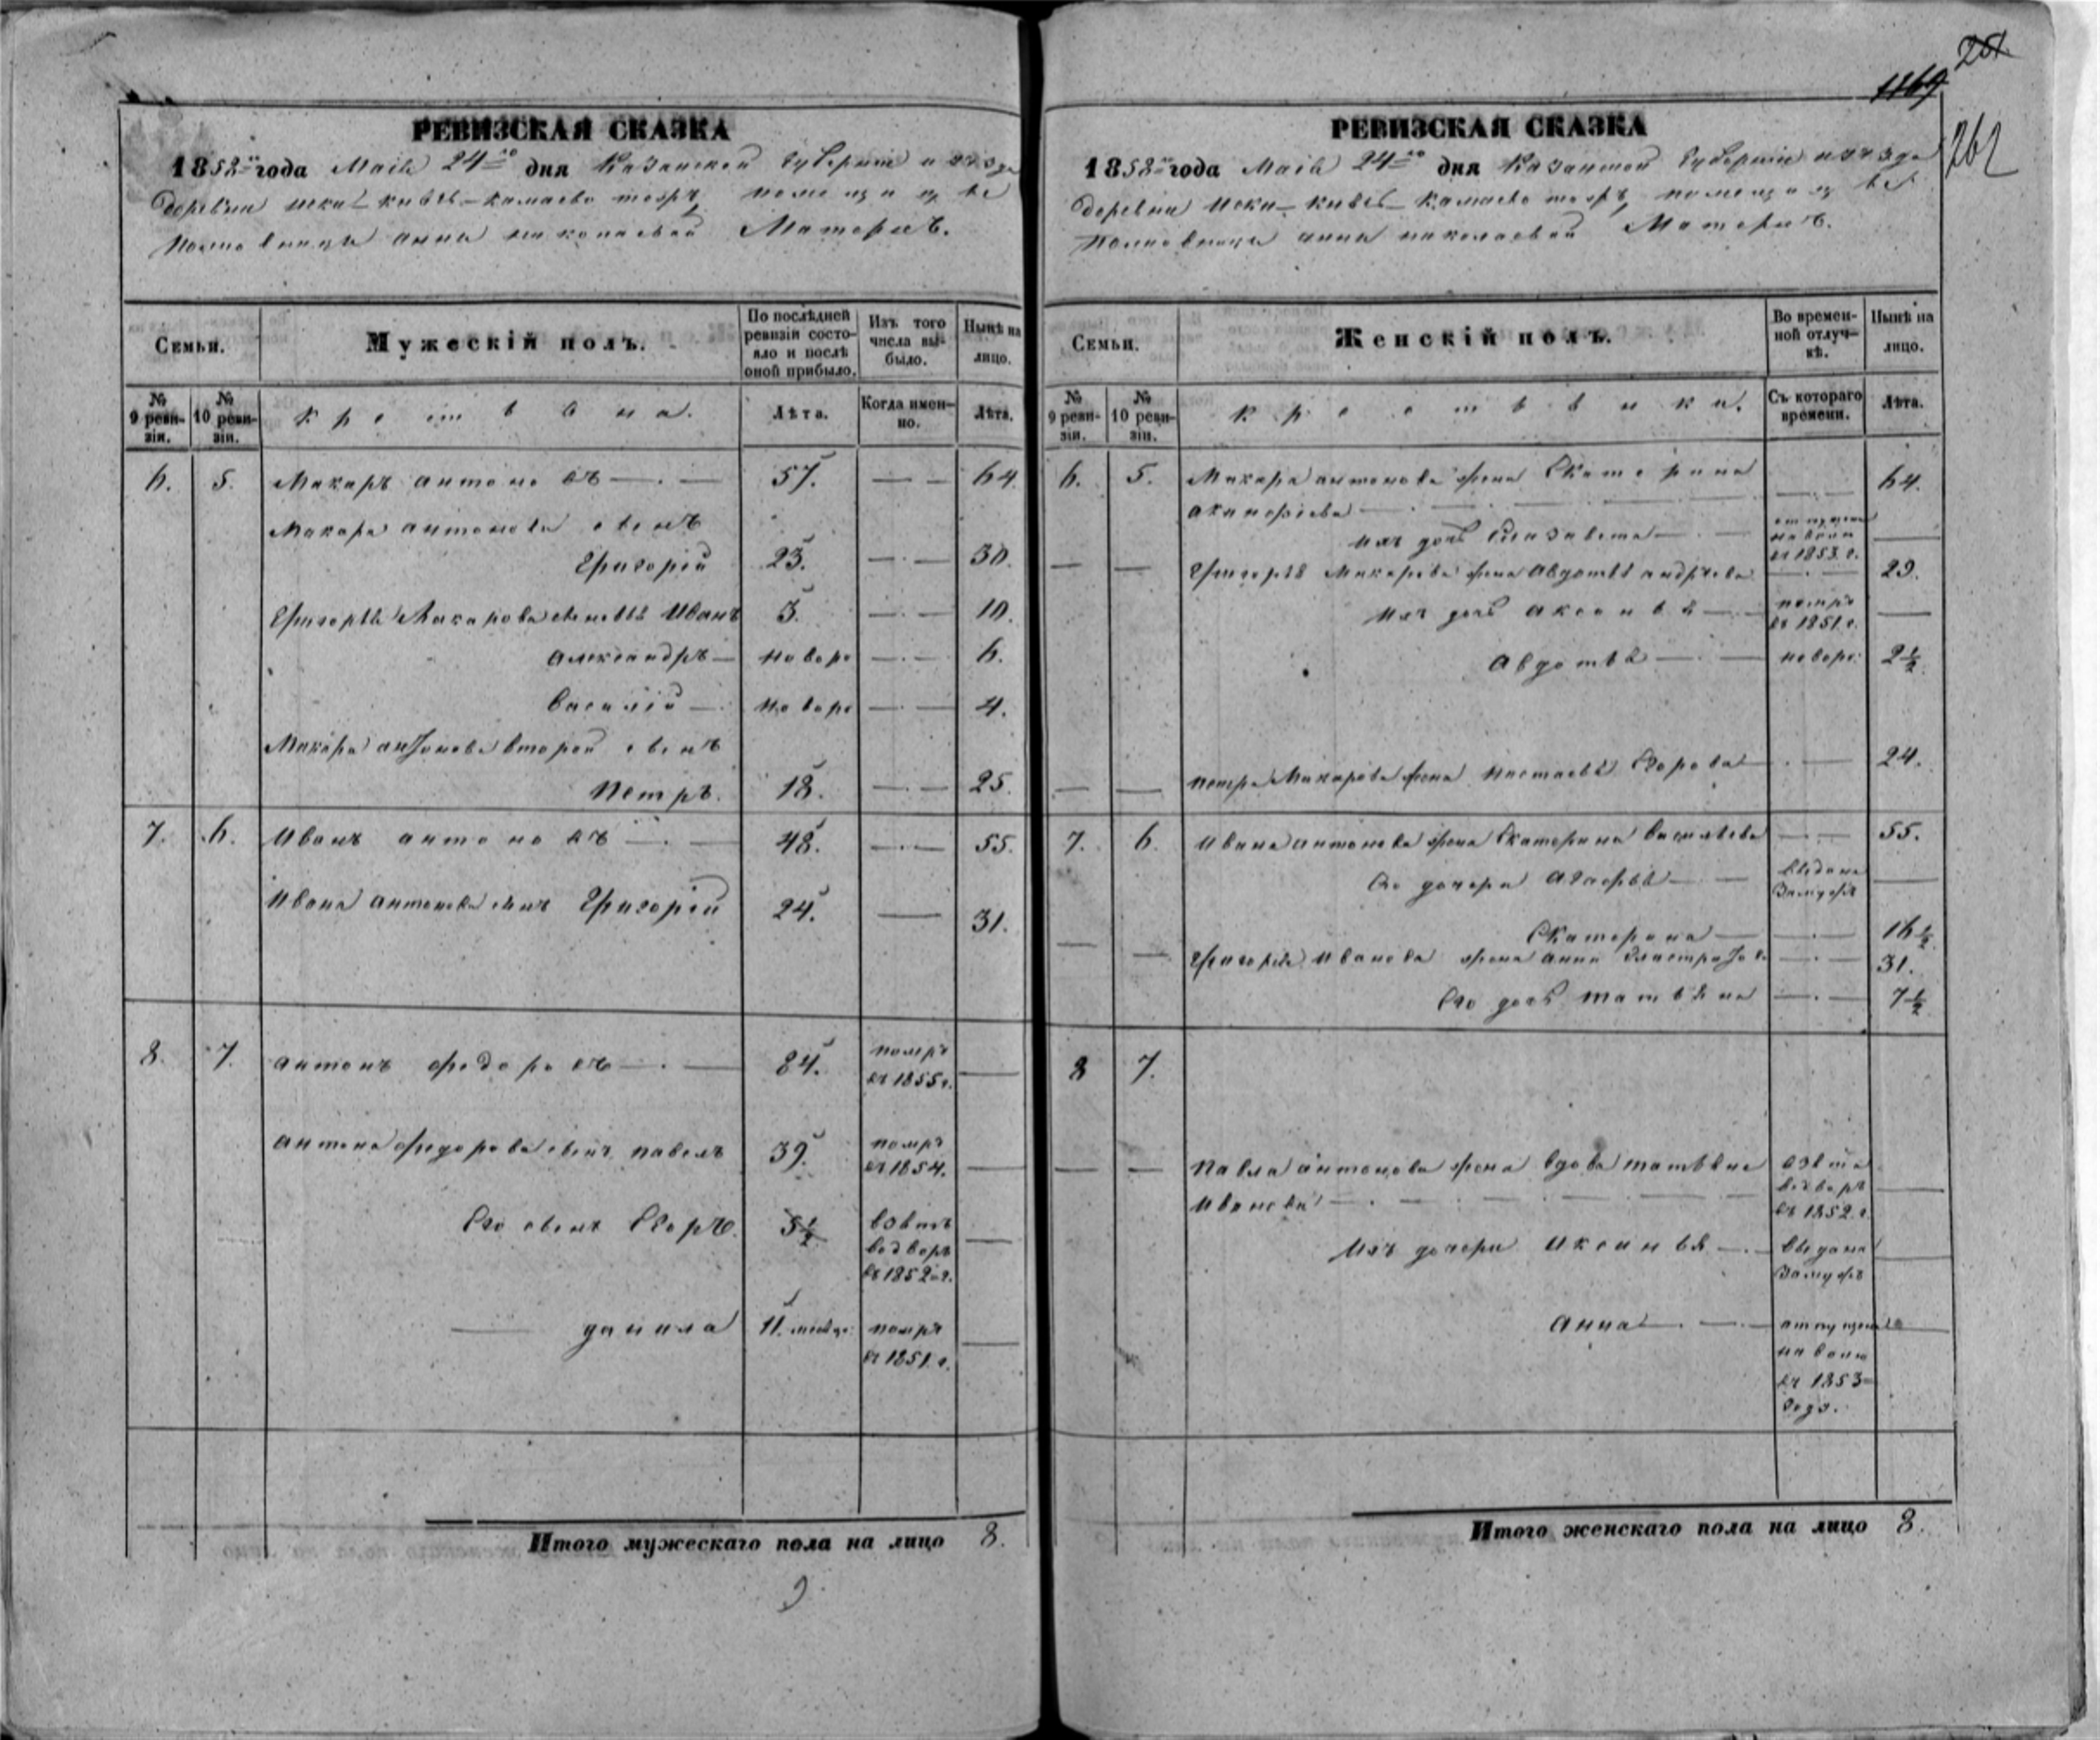 РЕВИЗСКАЯ СКАЗКА
1858 года Маія 24го дня Казанской Губерніи и уѣзда
деревни Иски-Кивъ-Камаево тожъ помещицы
Анны Николаевой
Семьи.
Мужескій полъ.
По послѣдней ревизіи состояло и послѣ оной прибыло.
Изъ того числа выбыло.
Нынѣ на лицо.
№ 9 ревизіи.
№ 10 ревизіи.
крестьяна.
Лѣта.
Когда именно.
Лѣта.
6. 5. Макаръ антоновъ 57. 64.
Макара антонова сынъ
Григорій 23. 30.
Григорья Макарова сыновья Иванъ 3. 10.
александръ новоро 6.
василій новоро 4.
Макара антонова второй сынъ
Петръ. 18. 25.
7. 6. Иванъ антоновъ 48. 55.
Ивана антонова сынъ Григорій 24. 31.
8. 7. антонъ федоровъ 84. помръ
въ 1855 г.
антона федорова сынъ павелъ 39. помръ
въ 1854.
Его сынъ Егоръ. 5 1/2 взятъ
во дворъ
въ 1852 г.
данила 11. месяц: помръ
въ 1851 г.
Итого мужескаго пола на лицо 8.
1169
262
РЕВИЗСКАЯ СКАЗКА
1858 года Маія 24го дня Казанской Губерніи и уѣзда
деревни Иски-Кивъ-Камаево тожъ помещицы
анны николаевой
Семьи.
Женскій полъ.
Во временной отлучкѣ.
Нынѣ на лицо.
№ 9 ревизіи.
№ 10 ревизіи.
крестьянки.
Съ котораго времени.
Лѣта.
6. 5. Макара антонова жена Екатерина 64.
Ихъ дочь Елизавета отпущена
на волю
въ 1853 г.
Григорья Макарова жена Авдотья андреева 29.
Ихъ дочь аксинья помръ
въ 1851 г.
Авдотья новоро: 2 1/2
петра Макарова жена настасья Егорова 24.
7. 6. Ивана антонова жена Екатерина васильева 55.
Его дочери выдана
Замужъ
Екатерина 16 1/2
Григорья Иванова жена анна 31.
Его дочь татьяна 7 1/2
8 7.
Павла антонова жена вдова татьяна взята
Иванова во дворъ
въ 1852 г.
Ихъ дочери Аксинья выдана
Замужъ
анна отпущена
на волю
въ 1853
году.
Итого женскаго пола на лицо 8.